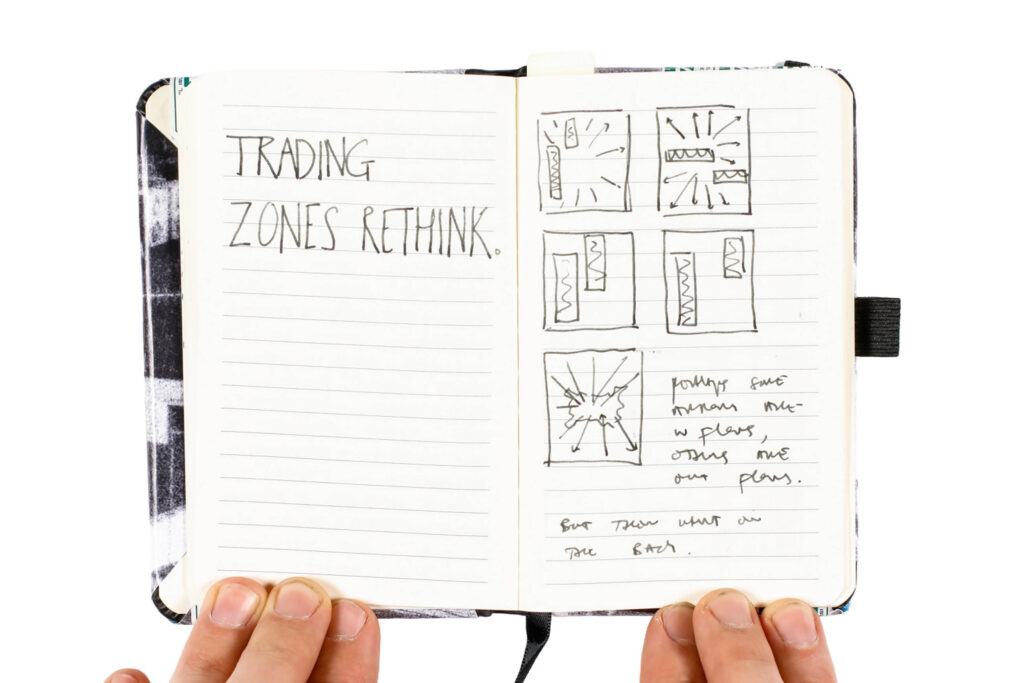 TRADING
ZONES RETHINK.
Perhaps some
arrows are
in flows,
others are
out flows.
But then what on
the back.